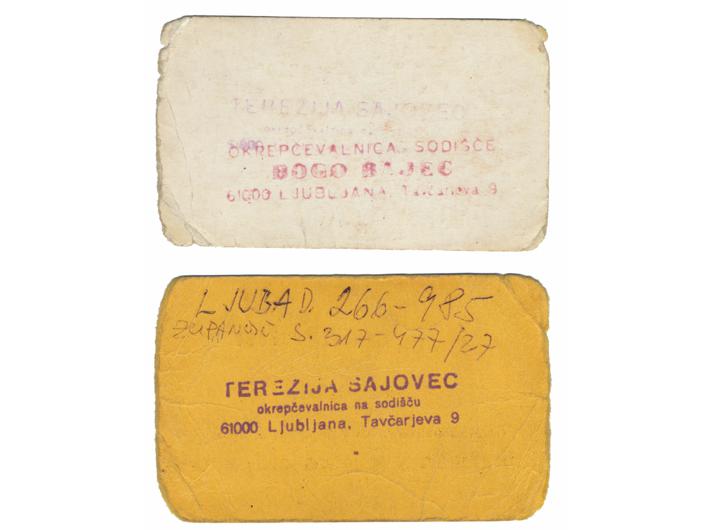 TEREZIJA SAJOVEC
OKREPČEVALNICA SODIŠČE
BOGO BAJEC
61000 LJUBLJANA, Tavčarjeva 9
LJUBA D. 266-985
ŽUPANČIČ S. 317-477/27
TEREZIJA SAJOVEC
okrepčevalnica na sodišču
61000 Ljubljana, Tavčarjeva 9